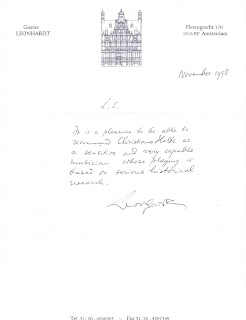 Gustav
LEONHARDT
Herengracht 170
1016 BP Amsterdam
November 1998
L.S.
It is a pleasure to be able to
recommend Christiano Holtz as
a sensitive and very capable
musician whose playing is
based on serious historical
research.
Leonhardt
Tel. 31. 20 -
Fax 31. 20 -